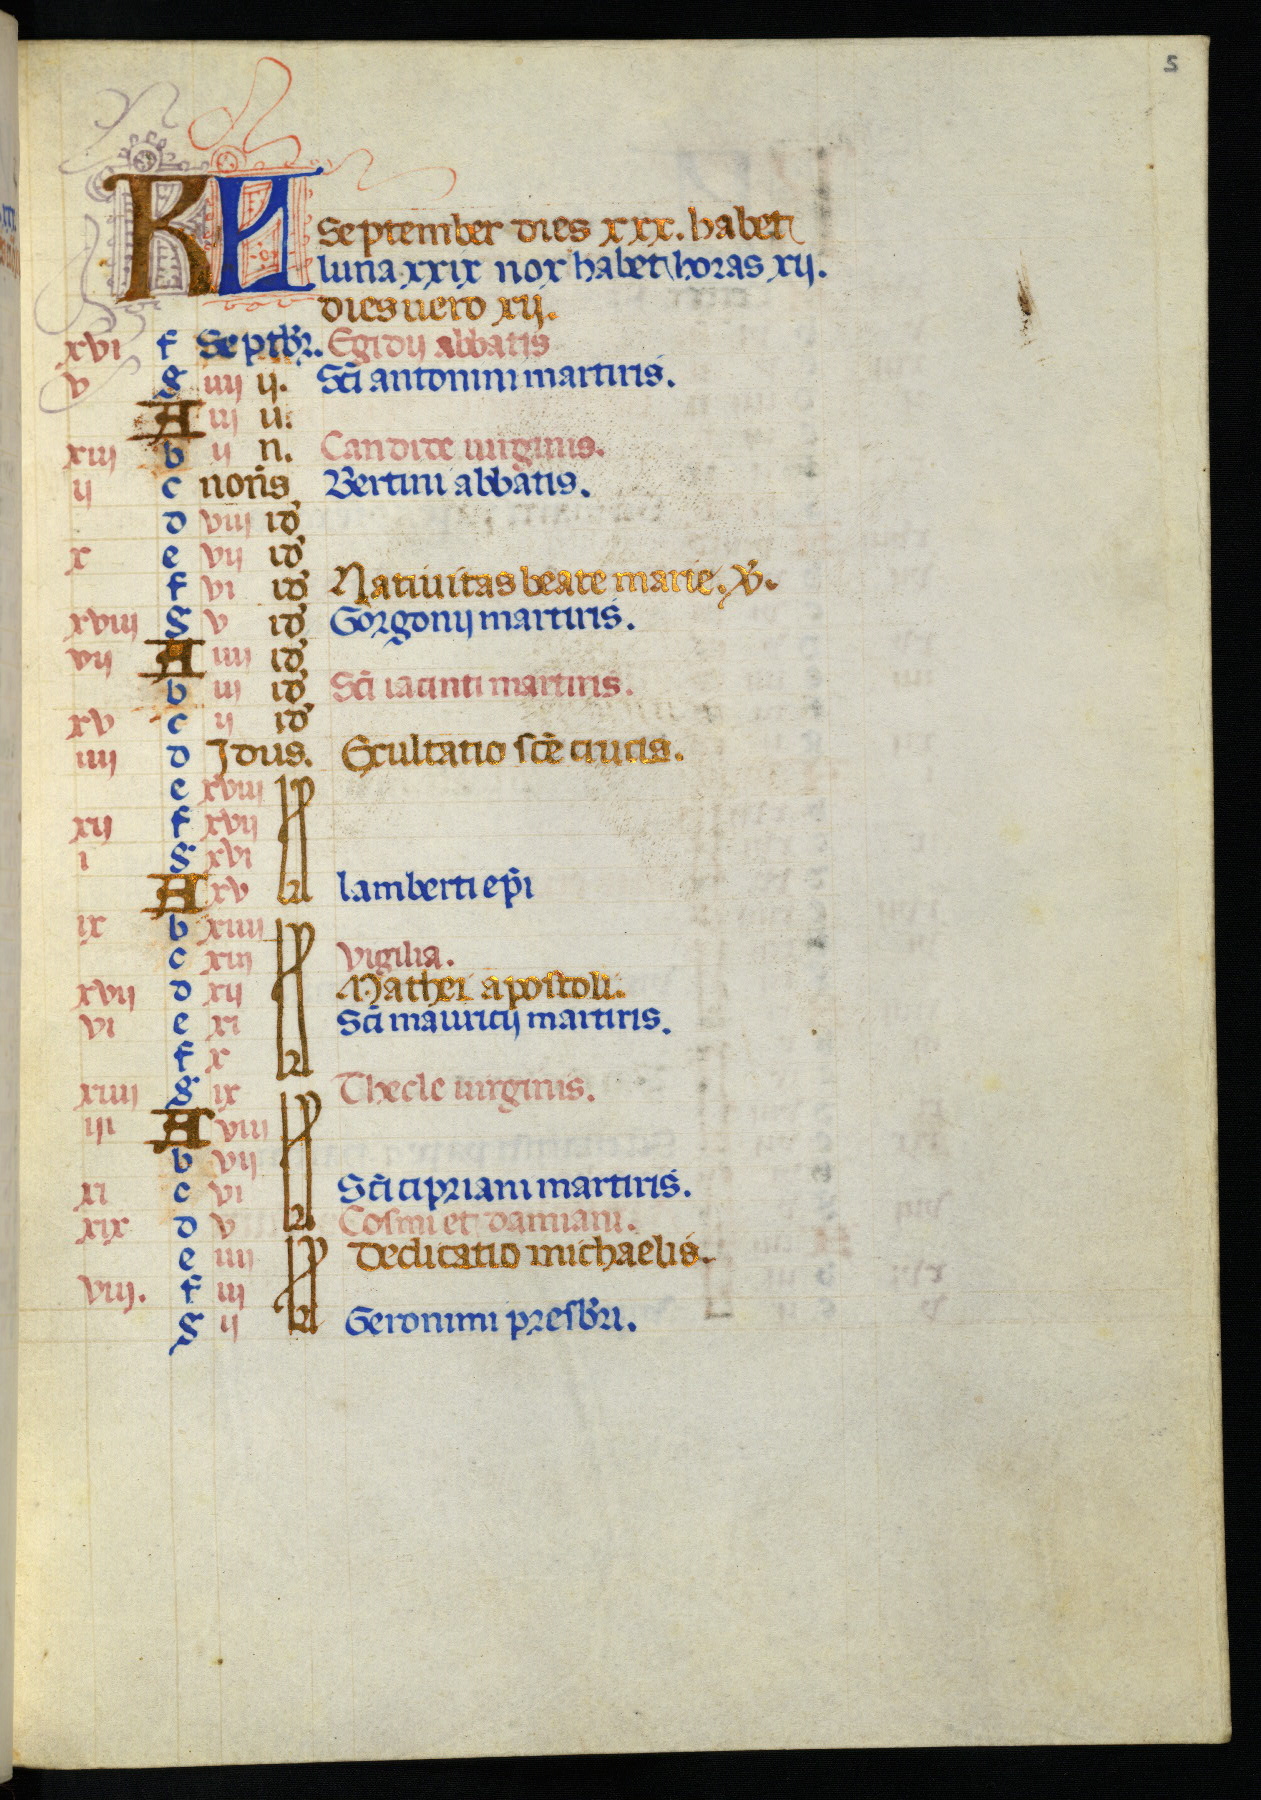 5
KL September dies xxx. habet
luna xxix nox habet horas xij.
dies uero xij.
xvi f Septbr. Egidij abbatis
v g iiij ij. Sci antonini martiris.
A iij n.
xiij b ij n. Candide uirginis.
ij c nonis Bertini abbatis.
d viij id
x e vij id
f vi id Natiuitas beate marie. v.
xviij g v id Gorgonij martiris.
vij A iiij id
b iij id Sci iacinti martiris.
xv c ij id
iiij d Idus. Excultatio sce crucis.
e xviij kl
xij f xvij
i g xvi
A xv lamberti epi
ix b xiiij kl
c xiij vigilia.
xvij d xij Mathei apostoli.
vi e xi Sci mauricij martiris.
f x
xiiij g ix Thecle uirginis.
iij A viij kl
b vij
xi c vi Sci cipriani martiris.
xix d v Cosmi et damiani.
e iiij kl Dedicatio michaelis.
viij. f iij
g ij Geronimi presbri.